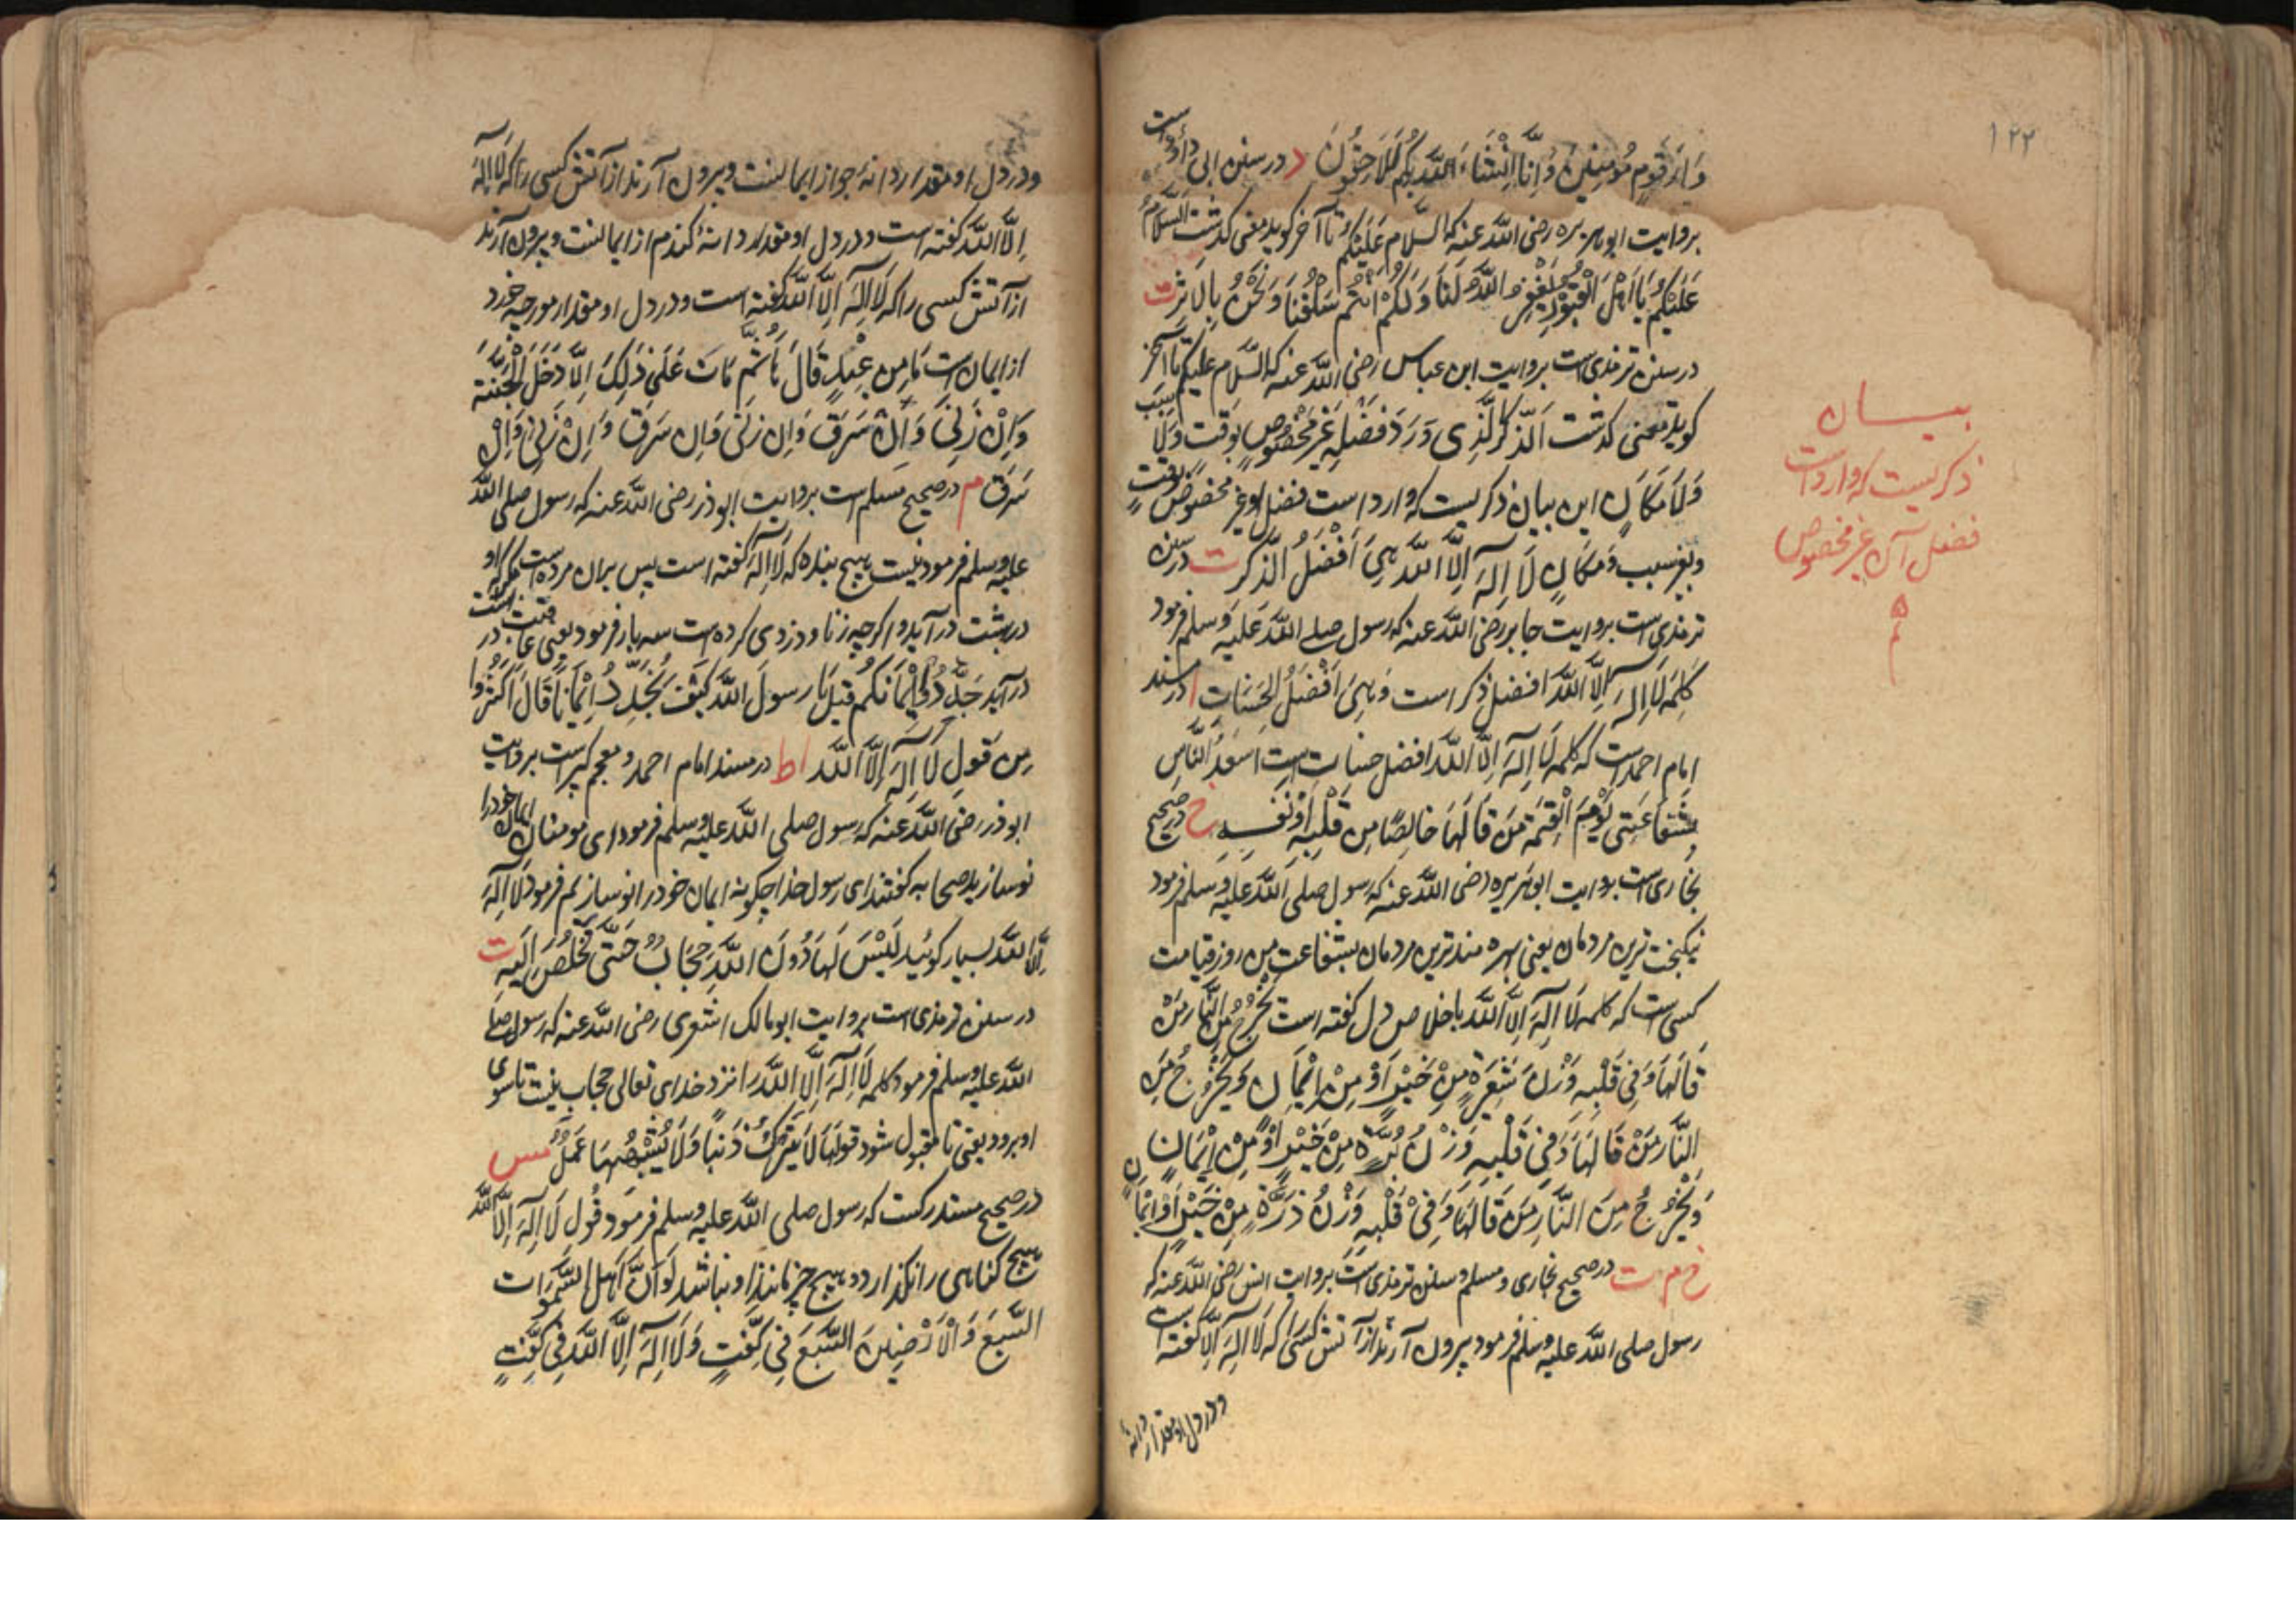 ۱۲۲
دار قوم مؤمنین وانا انشاء الله بکم للاحقون د در سنن ابی داؤد است
بروایت ابوهریره رضی الله عنه که السلام علیکم تا آخر کوید معنی کذشت السلام
علیکم یا اهل القبور یغفر الله لنا ولکم انتم سلفنا ونحن بالاثر ت
در سنن ترمذی است بروایت ابن عباس رضی الله عنه که السلام علیکم تا آخر
کوید معنی کذشت الذکر الذی ورد فضله غیر مخصوص بوقت ولا سبب
ولا مکان این بیان ذکریست که وارد است فضل او غیر مخصوص بوقت
وبغیر سبب ومکان لا اله الا الله هی افضل الذکر ت در سنن
ترمذی است بروایت جابر رضی الله عنه که رسول صلی الله علیه وسلم فرمود
کلمه لا اله الا الله افضل ذکر است وهی افضل الحسنات ا در مسند
امام احمد است که کلمه لا اله الا الله افضل حسنات است اسعد الناس
بشفاعتی یوم القیمة من قالها خالصا من قلبه او نفسه خ در صحیح
بخاری است بروایت ابوهریره رضی الله عنه که رسول صلی الله علیه وسلم فرمود
نیکبخت ترین مردمان یعنی بهره مند ترین مردمان بشفاعت من روز قیامت
کسی است که کلمه لا اله الا الله باخلاص دل کفته است یخرج من النار من
قالها وفی قلبه وزن شعیرة من خیر او من ایمان ویخرج من
النار من قالها وفی قلبه وزن برة من خیر او من ایمان
ویخرج من النار من قالها وفی قلبه وزن ذرة من خیر او ایمان
خ م ت در صحیح بخاری ومسلم وسنن ترمذی است بروایت انس رضی الله عنه که
رسول صلی الله علیه وسلم فرمود بیرون آرند از آتش کسی که لا اله الا کفته است
ودر دل او مقدار دانهٔ
بیان
ذکریست که وارد است
فضل آن غیر مخصوص
ودر دل او مقدار دانهٔ جو از ایمانست وبیرون آرند از آتش کسی را که لا اله
الا الله کفته است ودر دل او مقدار دانهٔ کندم از ایمانست وبیرون آرند
از آتش کسی را که لا اله الا الله کفته است ودر دل او مقدار مورچه خورد
از ایمان است ما من عبد قالها ثم مات علی ذلک الا دخل الجنة
وان زنی وان سرق وان زنی وان سرق وان زنی وان
سرق م در صحیح مسلم است بروایت ابوذر رضی الله عنه که رسول صلی الله
علیه وسلم فرمود نیست هیچ بنده که لا اله کفته است پس بران مرده است مکر که او
در بهشت در آید واکرچه زنا ودزدی کرده است سه بار فرمود یعنی عاقبت در بهشت
در آید جددوا ایمانکم قیل یا رسول الله کیف نجدد ایماننا قال اکثروا
من قول لا اله الا الله ا ط در مسند امام احمد ومعجم کبیر است بروایت
ابوذر رضی الله عنه که رسول صلی الله علیه وسلم فرمود ای مومنان ایمان خود را
نو سازید صحابه کفتند ای رسول خدا چکونه ایمان خود را نو سازیم فرمود لا اله
الا الله بسیار کوئید لیس لها دون الله حجاب حتی تخلص الیه ت
در سنن ترمذی است بروایت ابو مالک اشعری رضی الله عنه که رسول صلی
الله علیه وسلم فرمود کلمه لا اله الا الله را نزد خدای تعالی حجاب نیست تا سوی
او برود یعنی تا مقبول شود قولها لا یترک ذنبا ولا یشبهها عمل مس
در صحیح مستدرکست که رسول صلی الله علیه وسلم فرمود قول لا اله الا الله
هیچ کناهی را نکذارد وهیچ چیز مانند او نباشد لو ان اهل السموات
السبع والارضین السبع فی کفة ولا اله الا الله فی کفة